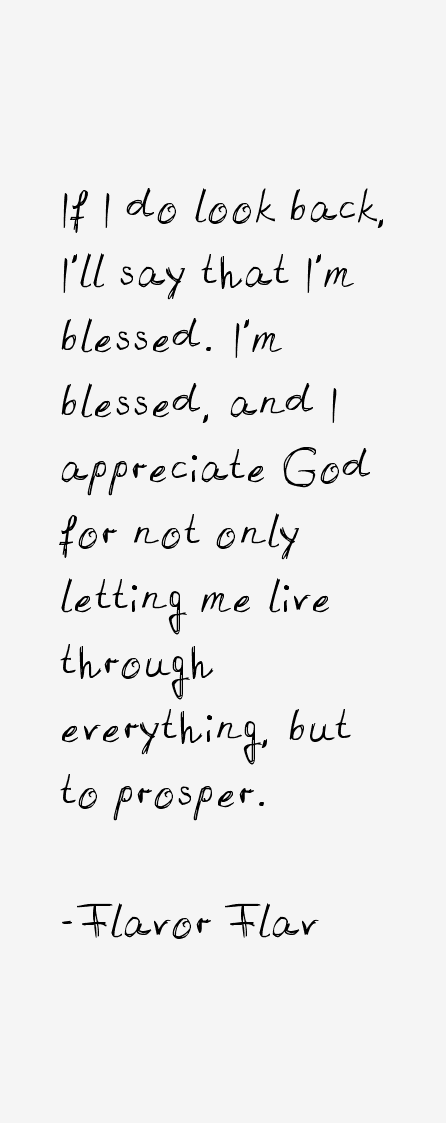 If I do look back,
I'll say that I'm
blessed. I'm
blessed, and I
appreciate God
for not only
letting me live
through
everything, but
to prosper.
-Flavor Flav